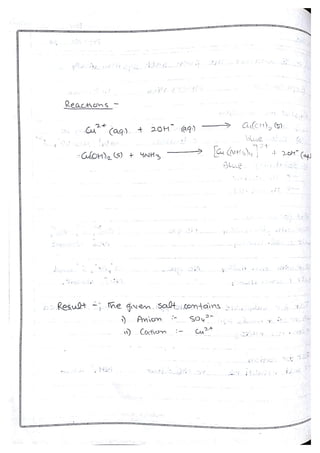 Reactions -
Cu²⁺ (aq.) + 2OH⁻ (aq.) ⟶ Cu(OH)₂ (s)
blue
Cu(OH)₂ (s) + 4NH₃ ⟶ [Cu(NH₃)₄]²⁺ + 2OH⁻ (aq.)
Blue
Result -; The given salt contains
i) Anion :- SO₄²⁻
ii) Cation :- Cu²⁺